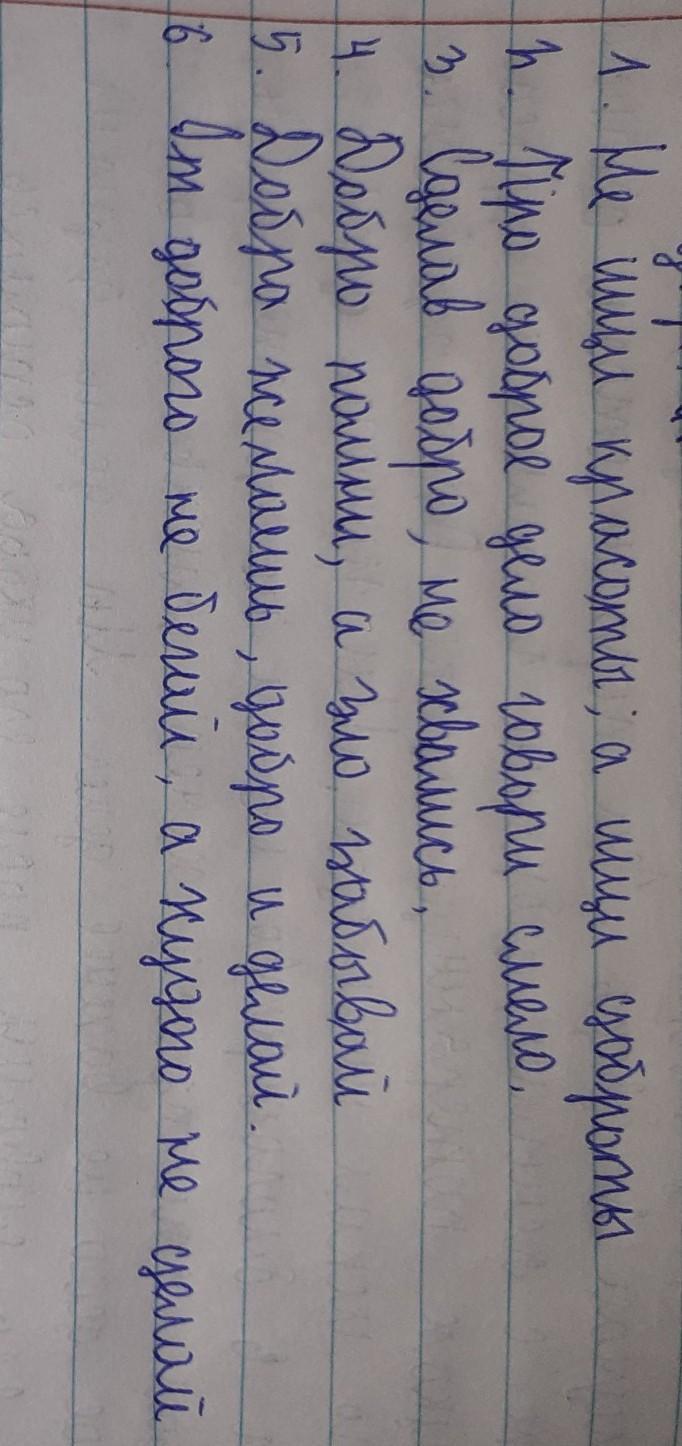 1. Не ищи красоты, а ищи доброты
2. Про доброе дело говори смело.
3. Сделав добро, не хвались,
4. Добро помни, а зло забывай
5. Добра желаешь, добро и делай.
6. От доброго не бегай, а худого не сделай